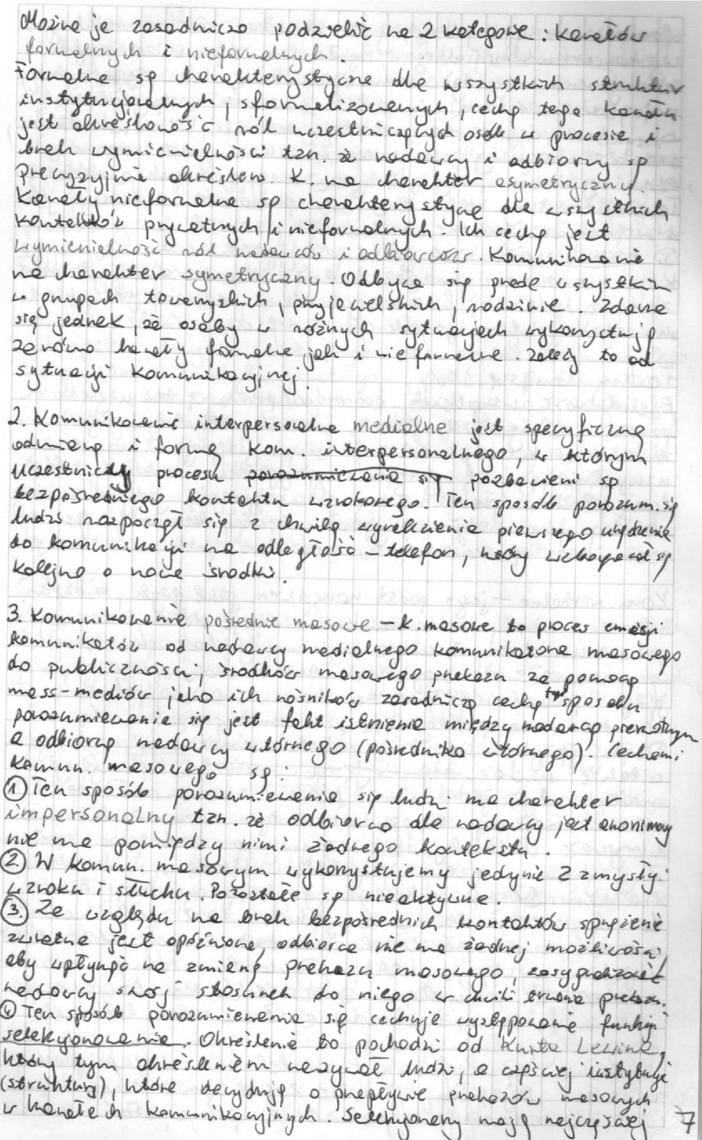 Można je zasadniczo podzielić na 2 kategorie: kanałów
formalnych i nieformalnych.
Formalne są charakterystyczne dla wszystkich struktur
instytucjonalnych, sformalizowanych, cechą tego kanału
jest określoność ról uczestniczących osób w procesie i
brak wymienielności tzn. że nadawcy i odbiorcy są
precyzyjnie określeni. K. ma charakter asymetryczny.
Kanały nieformalne są charakterystyczne dla wszystkich
kontaktów prywatnych i nieformalnych. Ich cechą jest
wymienielność ról nadawców i odbiorców. Komunikowanie
ma charakter symetryczny. Odbywa się przede wszystkim
w grupach towarzyskich, przyjacielskich, rodzinie. Zdarza
się jednak, że osoby w różnych sytuacjach wykorzystują
zarówno kanały formalne jak i nieformalne. Zależy to od
sytuacji komunikacyjnej.
2. Komunikowanie interpersonalne medialne jest specyficzną
odmianą i formą kom. interpersonalnego, w którym
uczestnicy procesu porozumiewania się pozbawieni są
bezpośredniego kontaktu wzrokowego. Ten sposób porozum. się
ludzi rozpoczął się z chwilą wynalezienia pierwszego urządzenia
do komunikacji na odległość - telefon, który wzbogacał się
kolejno o nowe środki.
3. Komunikowanie pośrednie masowe - k. masowe to proces emisji
komunikatów od nadawcy medialnego komunikatora masowego
do publiczności; środków masowego przekazu za pomocą
mass-mediów jako ich nośników zasadniczą cechą tego sposobu
porozumiewania się jest fakt istnienia między nadawcą pierwotnym
a odbiorcą nadawcy wtórnego (pośrednika wtórnego). Cechami
komun. masowego są:
① Ten sposób porozumiewania się ludzi ma charakter
impersonalny tzn. że odbiorca dla nadawcy jest anonimowy
nie ma pomiędzy nimi żadnego kontaktu.
②. W komun. masowym wykorzystujemy jedynie 2 zmysły:
wzroku i słuchu. Pozostałe są nieaktywne.
③. Ze względu na brak bezpośrednich kontaktów sprzężenie
zwrotne jest opóźnione, odbiorca nie ma żadnej możliwości,
aby wpłynąć na zmianę przekazu masowego, zasygnalizować
nadawcy swój stosunek do niego w chwili trwania przekazu.
④ Ten sposób porozumiewania się cechuje występowanie funkcji
selekcjonowania. Określenie to pochodzi od Kurta Lewina,
który tym określeniem nazywał ludzi, a częściej instytucje
(struktury), które decydują o przepływie przekazów masowych
w kanałach komunikacyjnych. Selekcjonerzy mają najczęściej 7